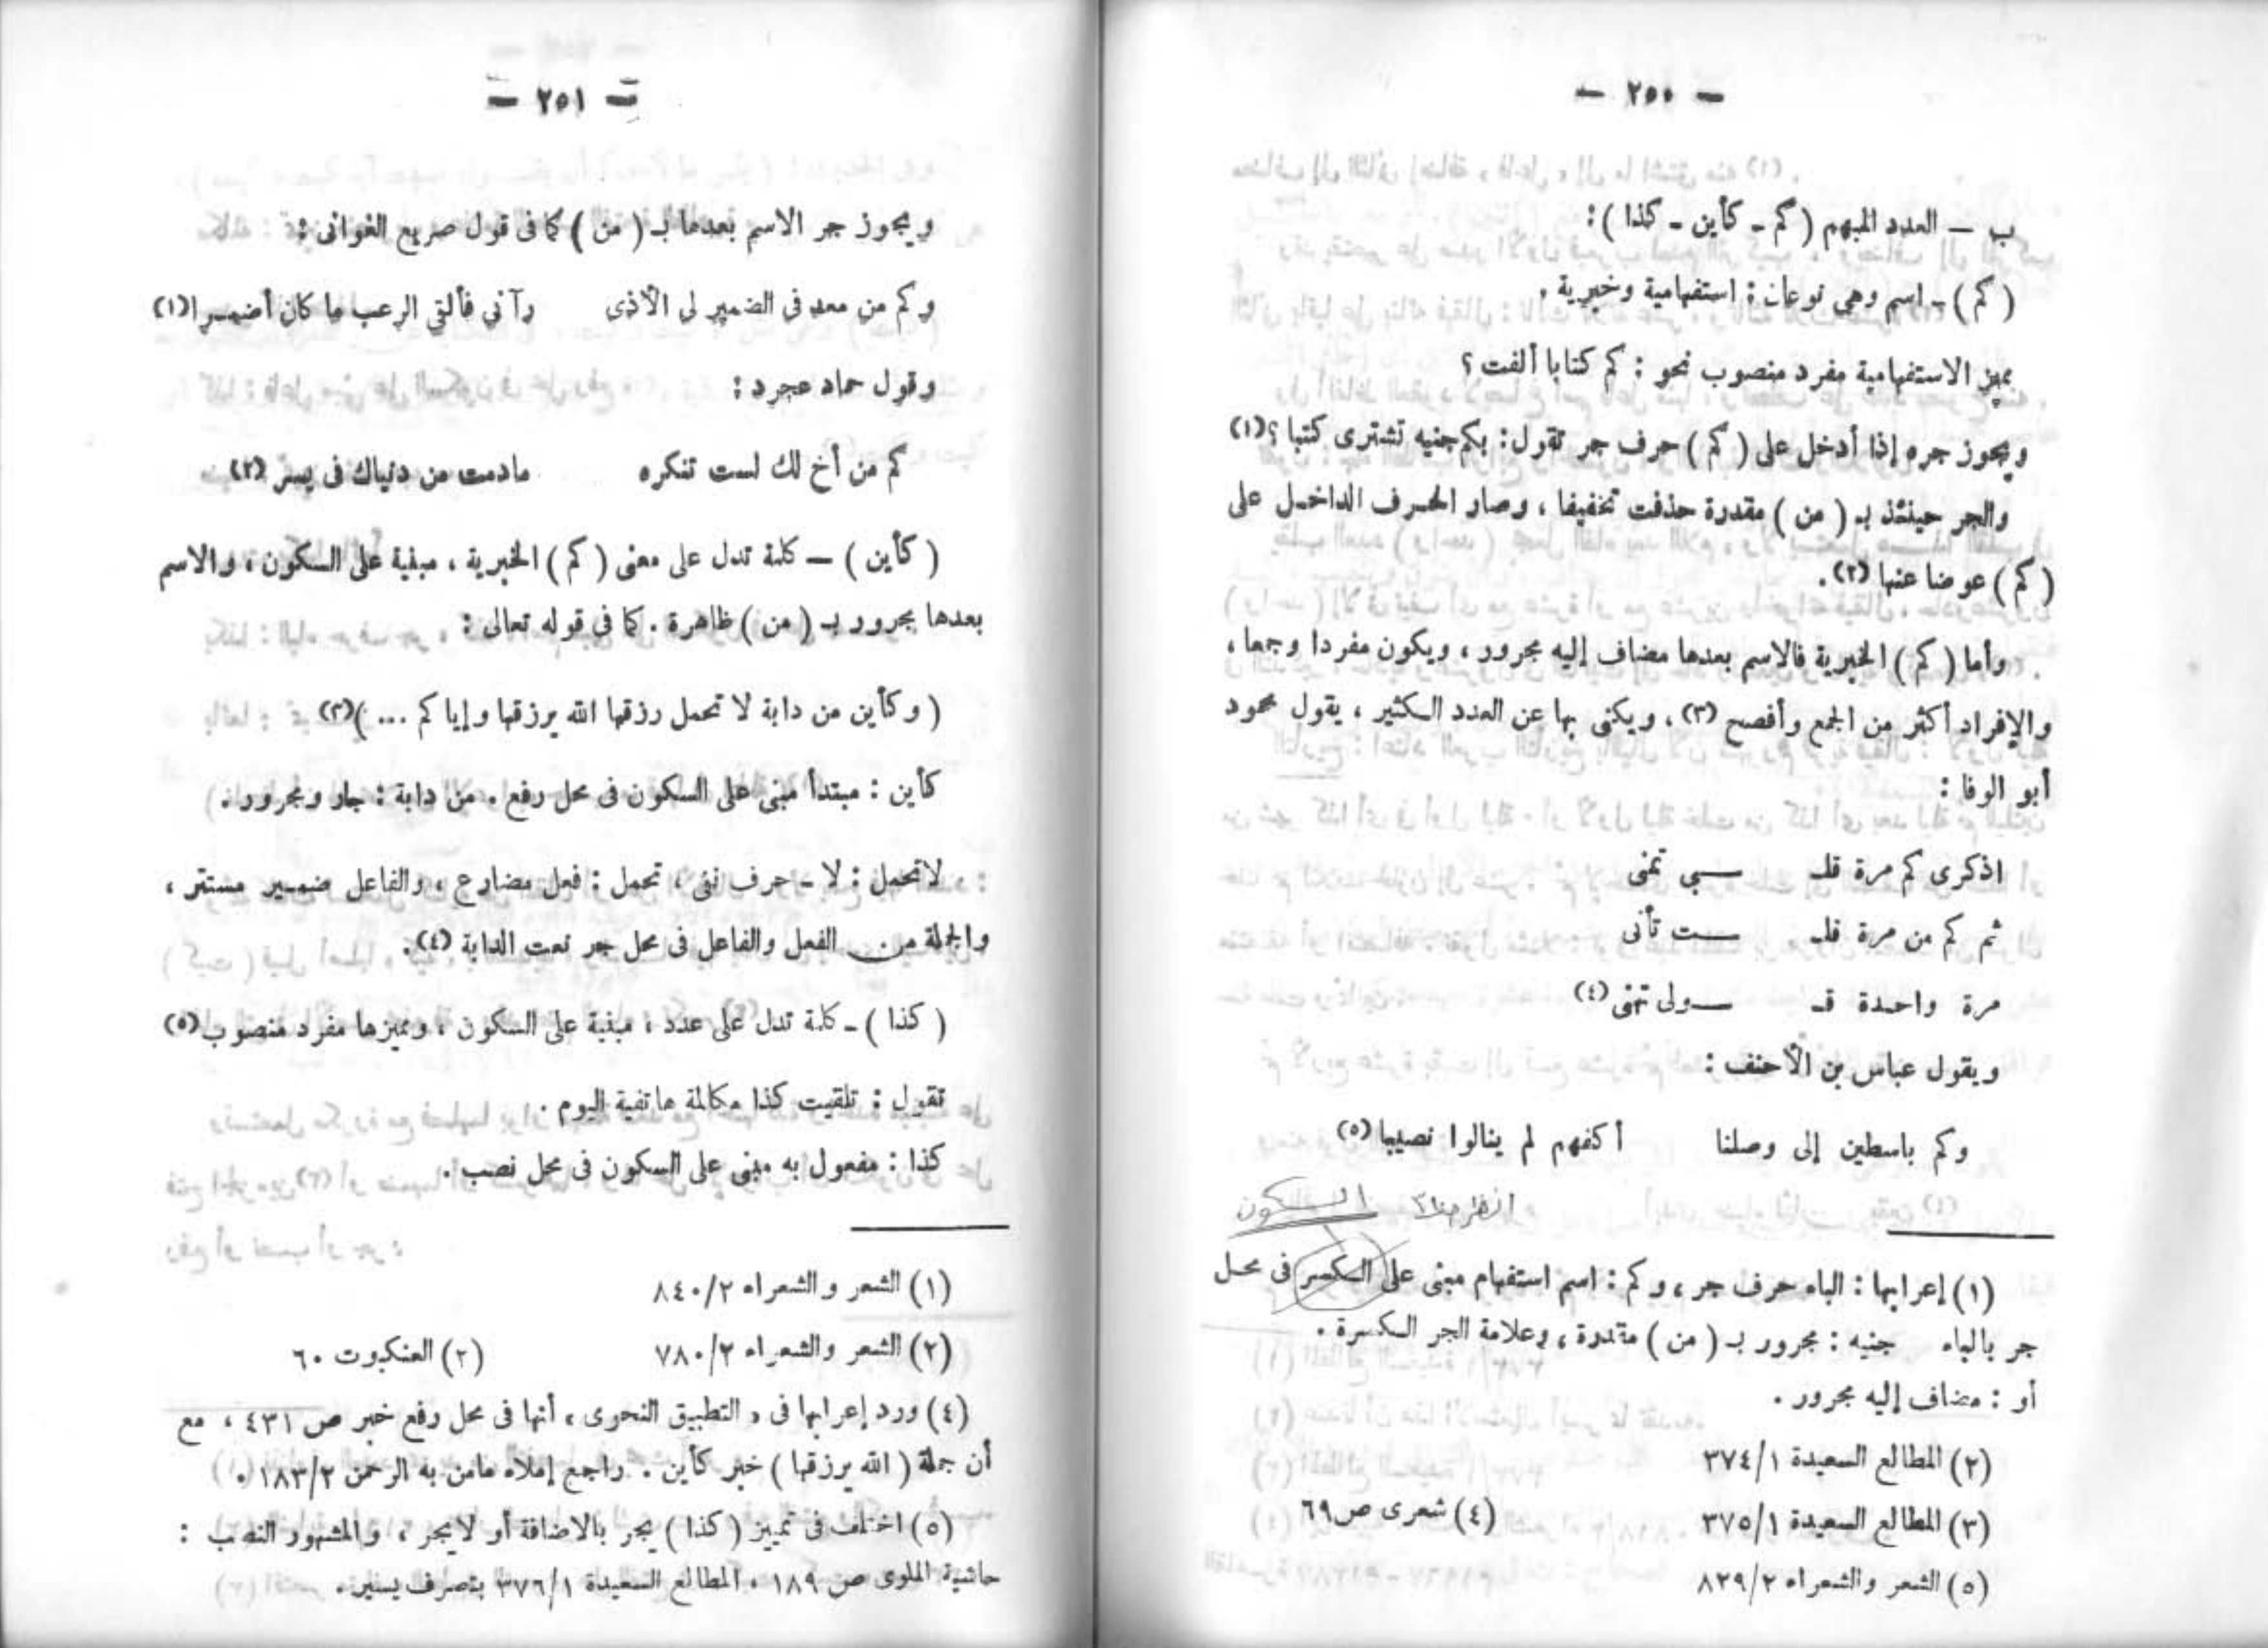 — ٢٥٠ —
ب — العدد المبهم ( كم - كأين - كذا ) :
( كم ) - اسم وهى نوعان : استفهامية وخبرية .
مميز الاستفهامية مفرد منصوب نحو : كم كتابا ألفت ؟
ويجوز جره إذا أدخل على ( كم ) حرف جر تقول : بكم جنيه تشترى كتبا ؟ (١)
والجر حينئذ بـ ( من ) مقدرة حذفت تخفيفا ، وصار الحرف الداخل على
( كم ) عوضا عنها (٢) .
وأما ( كم ) الخبرية فالاسم بعدها مضاف إليه مجرور ، ويكون مفردا وجمعا ،
والإفراد أكثر من الجمع وأفصح (٣) ، ويكنى بها عن العدد الكثير ، يقول محمود
أبو الوفا :
اذكرى كم مرة قلـ ـبى تمنى
ثم كم من مرة قلـ ـت تأنى
مرة واحدة قـ ـولى تمنى (٤)
ويقول عباس بن الأحنف :
وكم باسطين إلى وصلنا أكفهم لم ينالوا نصيبا (٥)
انظر هنا السكون
(١) إعرابها : الباء حرف جر ، وكم : اسم استفهام مبنى على الكسر فى محل
جر بالباء جنيه : مجرور بـ ( من ) مقدرة ، وعلامة الجر الكسرة .
أو : مضاف إليه مجرور .
(٢) المطالع السعيدة ٣٧٤/١
(٣) المطالع السعيدة ٣٧٥/١ (٤) شعرى ص ٦٩
(٥) الشعر والشعراء ٨٢٩/٢
— ٢٥١ —
ويجوز جر الاسم بعدها بـ ( من ) كما فى قول صريع الغوانى :
وكم من معد فى الضمير لى الأذى رآنى فألقى الرعب ما كان أضمرا (١)
وقول حماد عجرد :
كم من أخ لك لست تنكره مادمت من دنياك فى يسر (٢)
( كأين ) — كلمة تدل على معنى ( كم ) الخبرية ، مبنية على السكون ، والاسم
بعدها مجرور بـ ( من ) ظاهرة . كما فى قوله تعالى :
( وكأين من دابة لا تحمل رزقها الله يرزقها وإياكم ... ) (٣)
كأين : مبتدأ مبنى على السكون فى محل رفع . من دابة : جار ومجرور .
لاتحمل : لا - حرف نفى ، تحمل : فعل مضارع ، والفاعل ضمير مستتر ،
والجملة من الفعل والفاعل فى محل جر نعت الدابة (٤) .
( كذا ) - كلمة تدل على عدد ، مبنية على السكون ، ومميزها مفرد منصوب (٥)
تقول : تلقيت كذا مكالمة هاتفية اليوم .
كذا : مفعول به مبنى على السكون فى محل نصب .
(١) الشعر والشعراء ٨٤٠/٢
(٢) الشعر والشعراء ٧٨٠/٢ (٣) العنكبوت ٦٠
(٤) ورد إعرابها فى « التطبيق النحوى » أنها فى محل رفع خبر ص ٤٣١ ، مع
أن جملة ( الله يرزقها ) خبر كأين . راجع إملاء مامن به الرحمن ١٨٣/٢ .
(٥) اختلف فى تمييز ( كذا ) يجر بالاضافة أو لايجر ، والمشهور النصب :
حاشية الملوى ص ١٨٩ ، المطالع السعيدة ٣٧٦/١ بتصرف يسير .